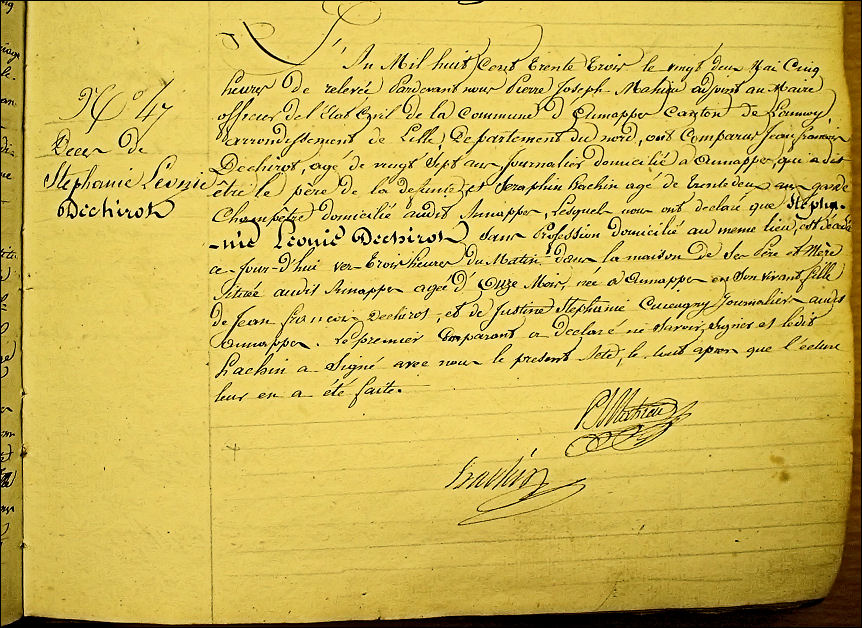 N.° 47
Deces de
Stephanie Leonie
Dechirot
L'An Mil huit Cent trente trois le vingt deux Mai Cinq
heures de relevée Pardevant nous Pierre Joseph Mahieu adjoint au Maire
officier de l'Etat Civil de la commune d'Annappes canton de Lannoy
arrondissement de Lille Departement du nord, ont Comparus Jean françois
Dechirot, agé de vingt Sept ans journalier domicilié a Annappes qui a dit
etre le père de la defunte, et Seraphin hachin agé de trente deux ans garde
Champêtre domicilié audit Annappes, Lesquels nous ont declaré que Stépha-
-nie Léonie Dechirot, sans Profession domicilié au même lieu, est décédée
ce-jour-d'hui vers Trois heures du Matin dans la maison de Ses Père et Mère
Située audit Annappes agée d'Onze Mois, née a Annappes en Son vivant fille
de Jean françois Dechirot, et de Justine Stephanie Journalier audit
Annappes. Le premier Comparant a declaré ne Savoir Signer et ledit
hachin a Signé avec nous le present Acte, le tout apres que lecture
leur en a été faite.
PJ Mahieu
hachin